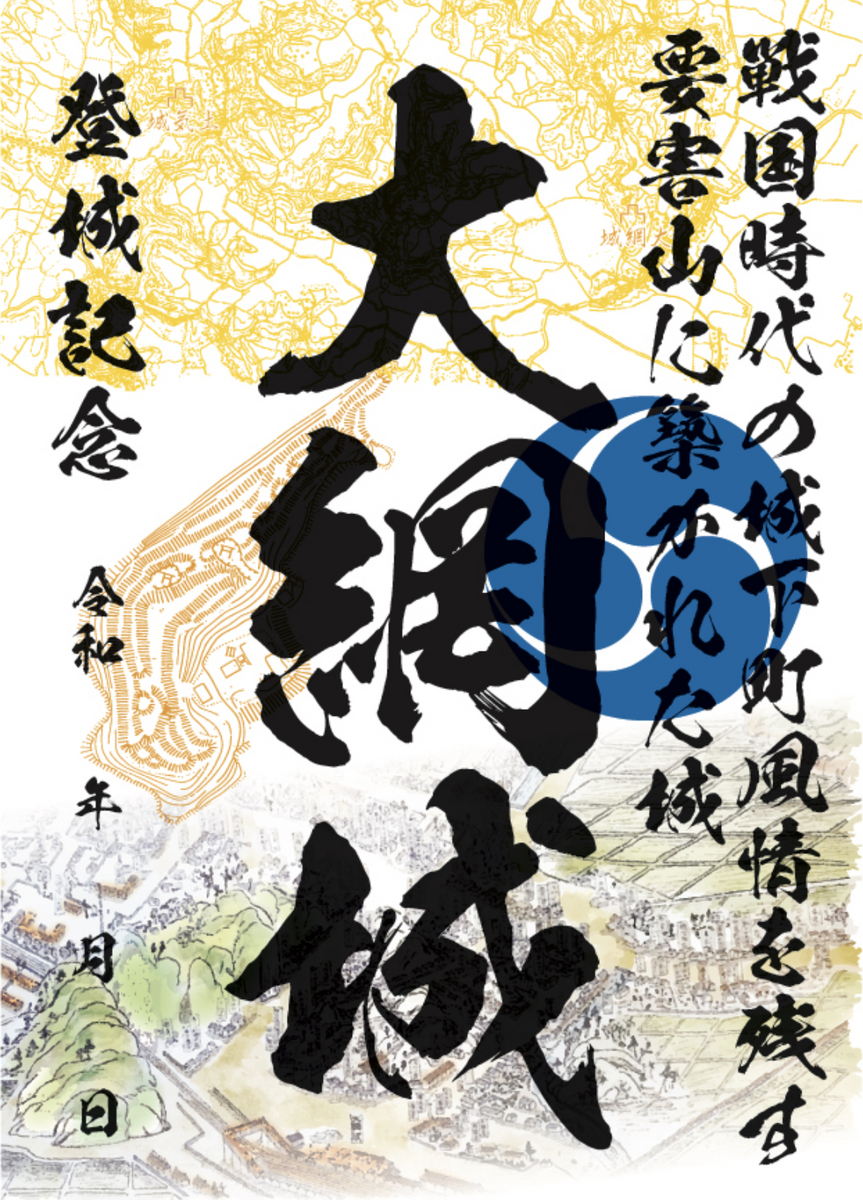 戦国時代の城下町風情を残す
要害山に築かれた城
大網城
登城記念
令和 年 月 日
城気土
城網大